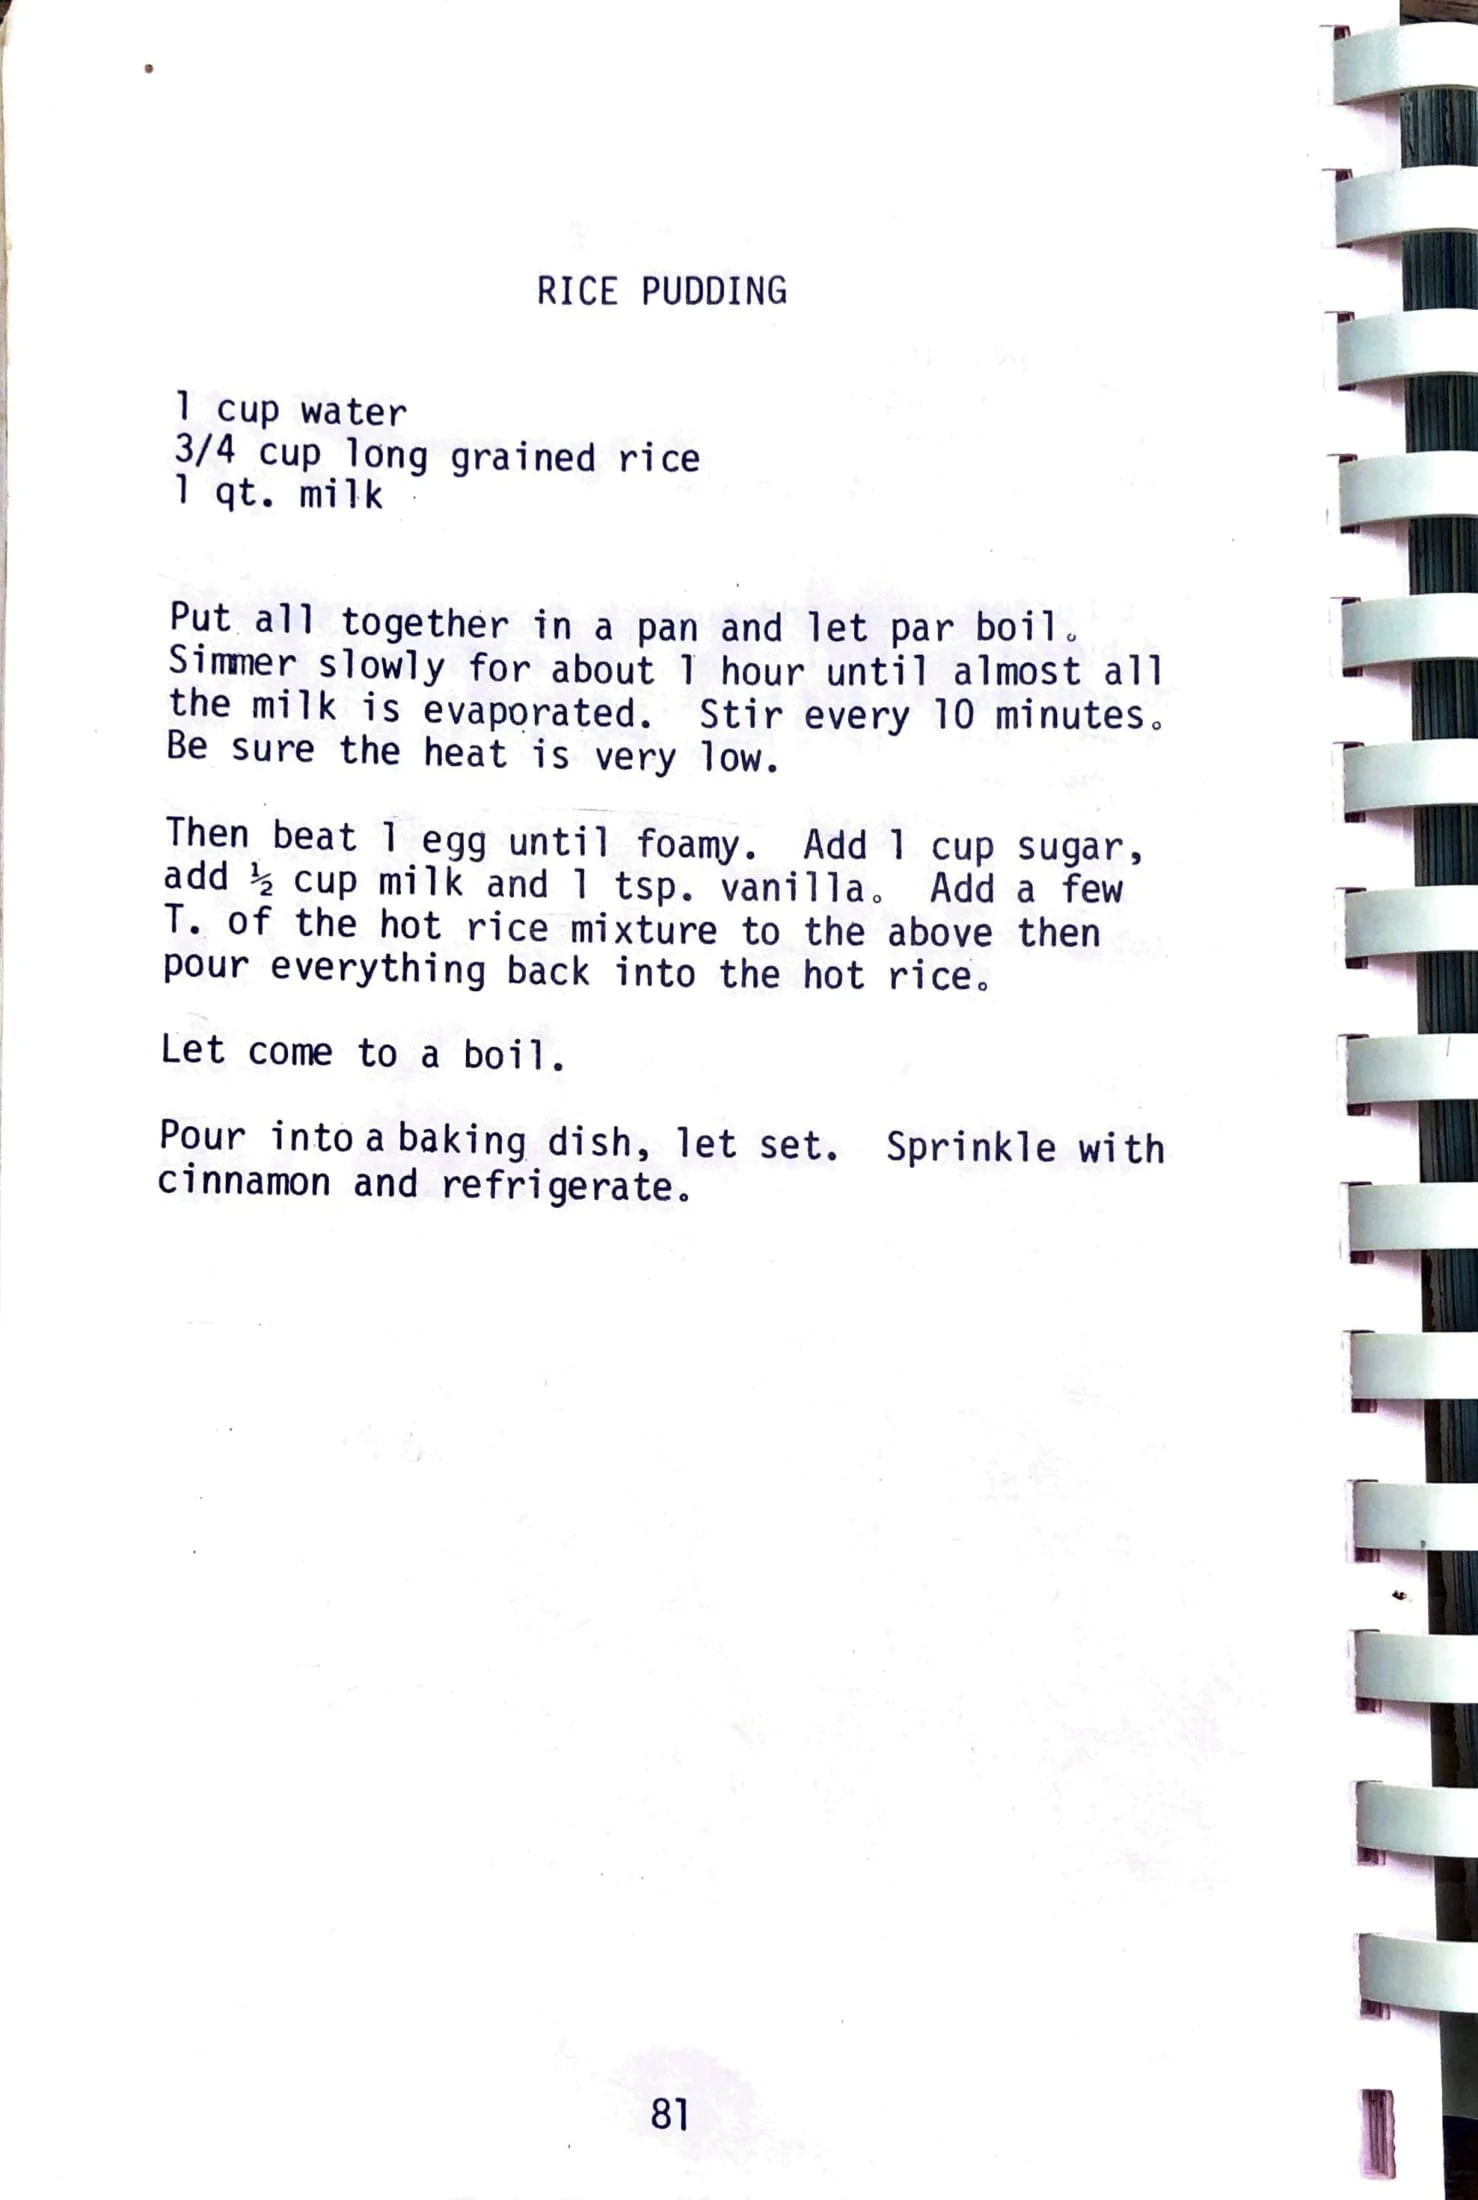 RICE PUDDING
1 cup water
3/4 cup long grained rice
1 qt. milk
Put all together in a pan and let par boil.
Simmer slowly for about 1 hour until almost all
the milk is evaporated. Stir every 10 minutes.
Be sure the heat is very low.
Then beat 1 egg until foamy. Add 1 cup sugar,
add ½ cup milk and 1 tsp. vanilla. Add a few
T. of the hot rice mixture to the above then
pour everything back into the hot rice.
Let come to a boil.
Pour into a baking dish, let set. Sprinkle with
cinnamon and refrigerate.
81